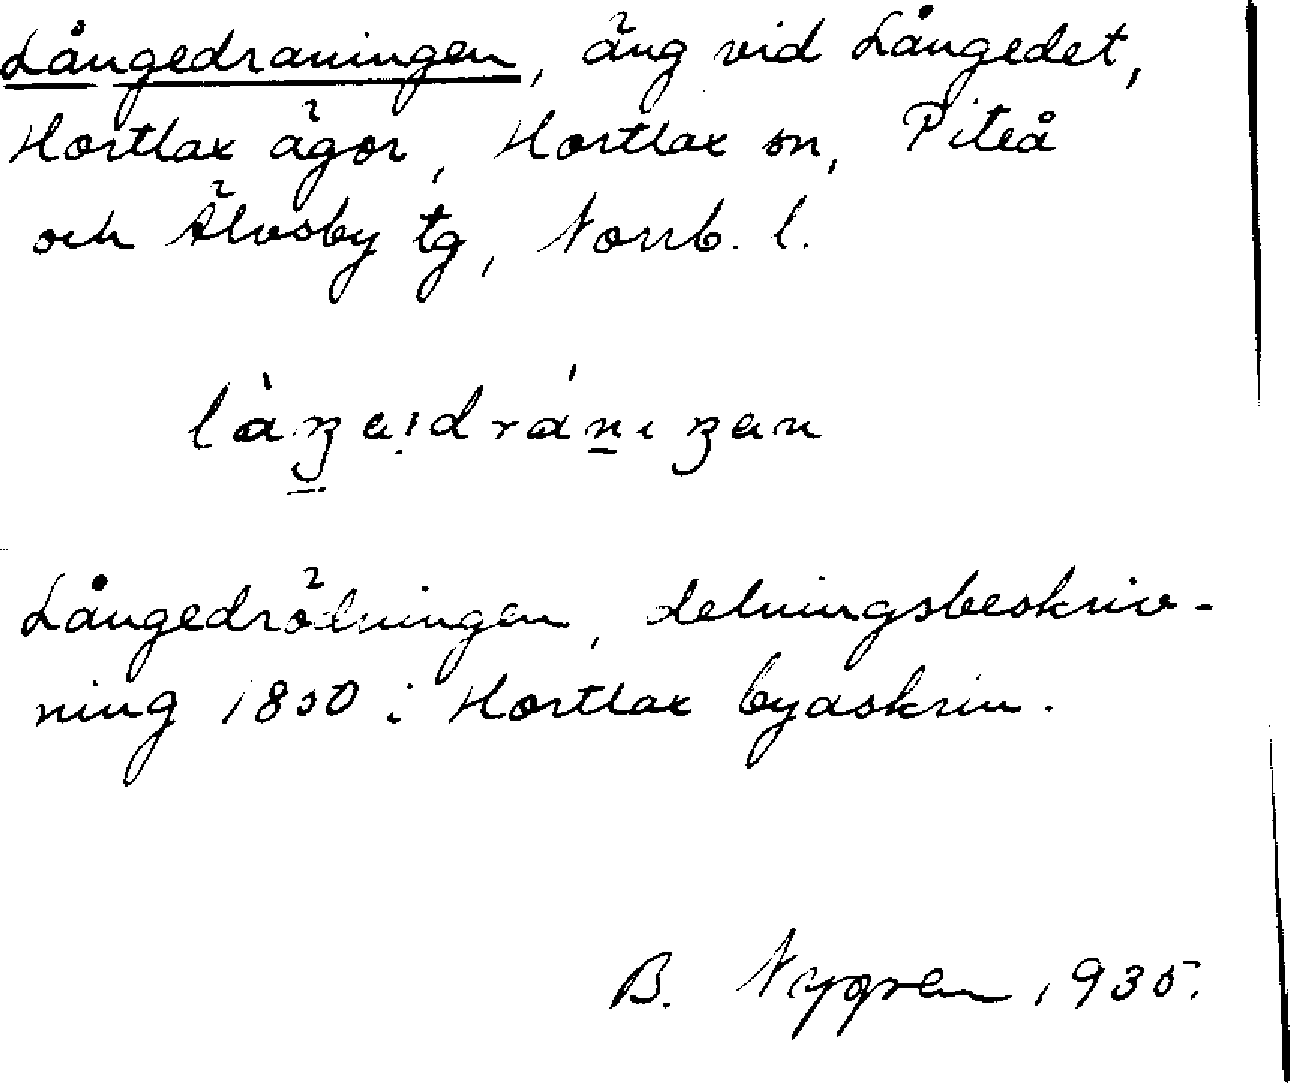 Långedraningen, äng vid Långedet,
Hortlax ägor, Hortlax sn, Piteå
och Älvsby tg, Norrb. l.
Långedrölningen, delningsbeskriv-
ning 1800 i Hortlax byaskrin.
B. Nygren 1935.